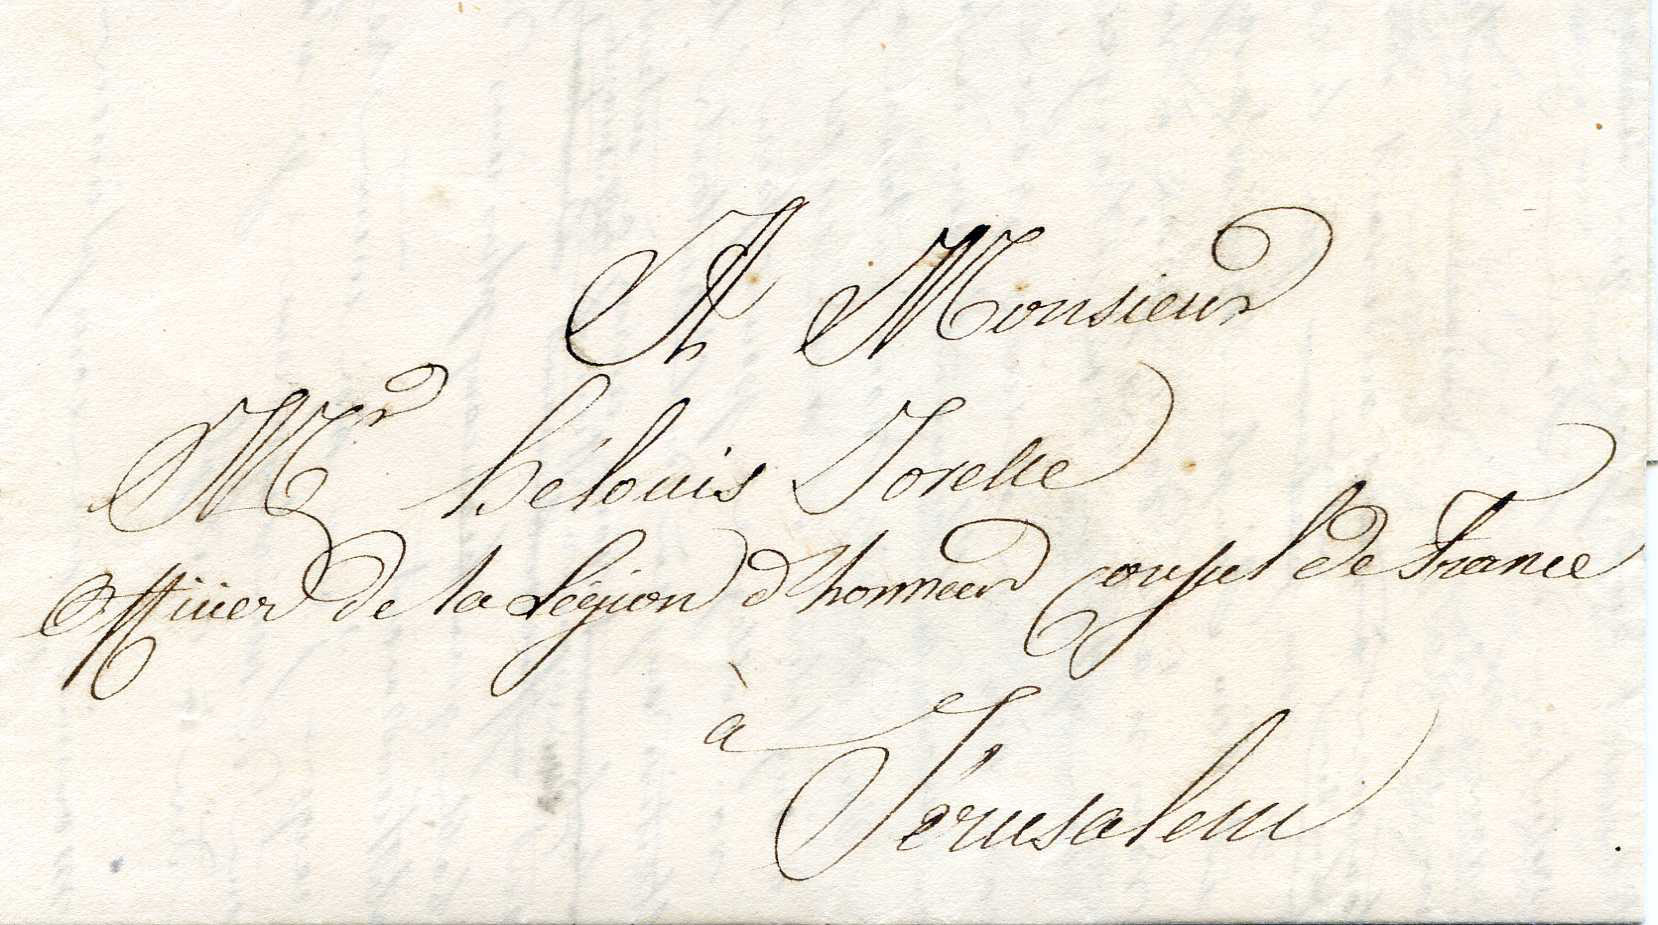 A Monsieur
Mr hélouis Jorelle
Officier de la Légion d'honneur Consul de France
à
Jérusalem